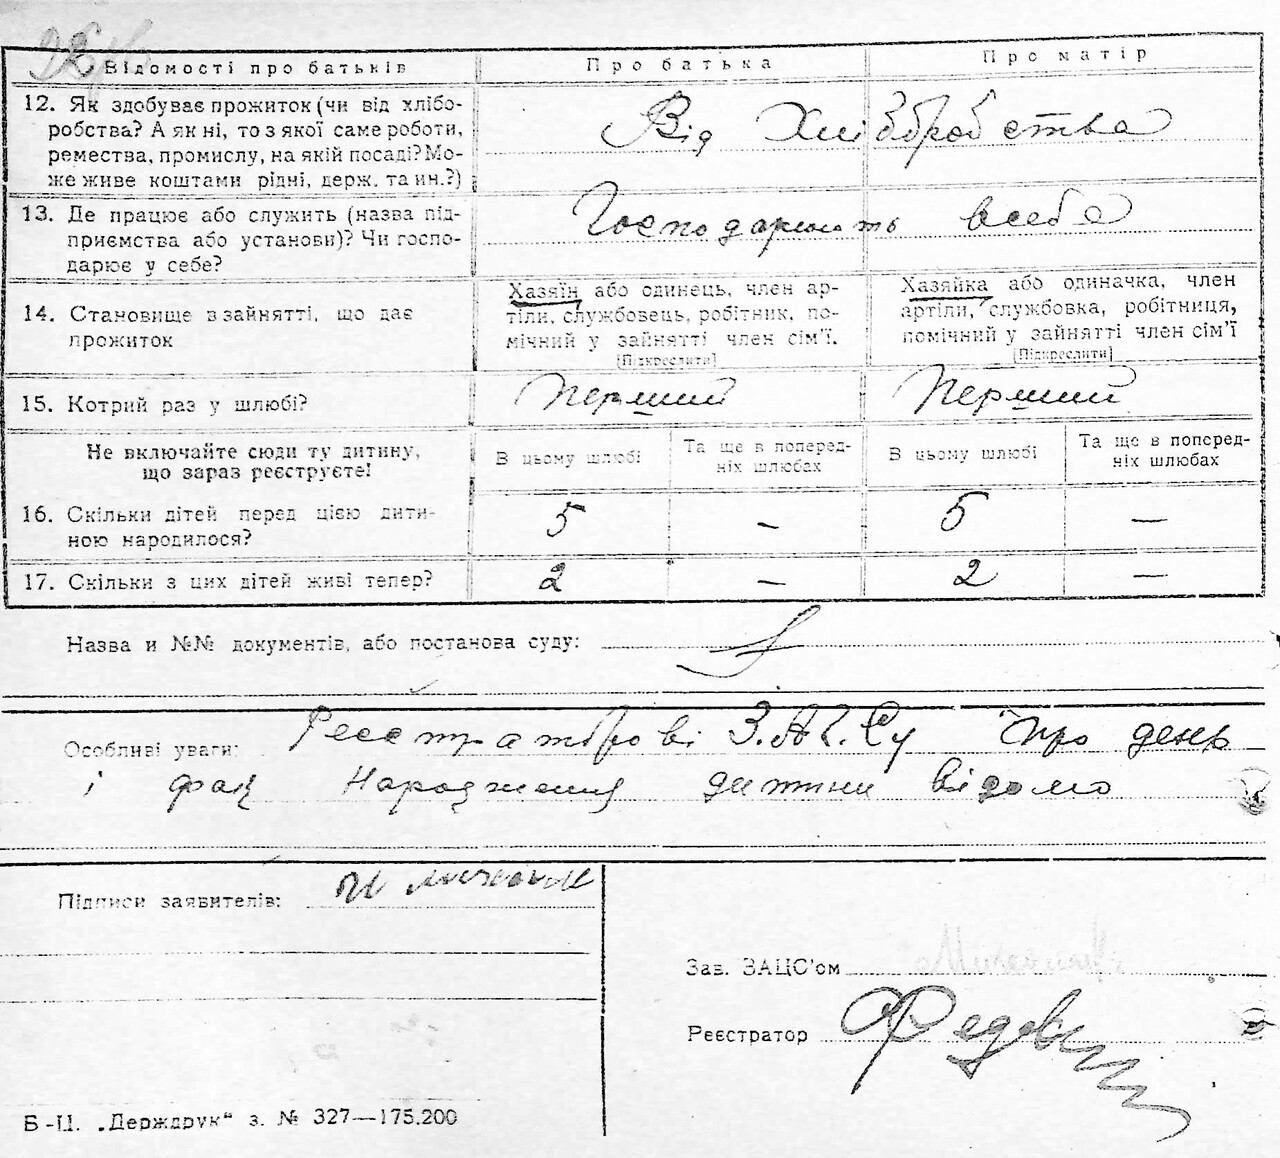 Відомості про батьків
Про батька
Про матір
12. Як здобуває прожиток (чи від хлібо-
робства? А як ні, то з якої саме роботи,
ремества, промислу, на якій посаді? Мо-
же живе коштами рідні, держ. та ин.?)
Від Хліборобства
13. Де працює або служить (назва під-
приємства або установи)? Чи госпо-
дарює у себе?
Господарюють всебе
14. Становище в зайнятті, що дає
прожиток
Хазяїн або одинець, член ар-
тіли, службовець, робітник, по-
мічний у зайнятті член сім'ї.
[Підкреслити]
Хазяйка або одиначка, член
артіли, службовка, робітниця,
помічний у зайнятті член сім'ї
[Підкреслити]
15. Котрий раз у шлюбі?
Перший
Перший
Не включайте сюди ту дитину,
що зараз реєструєте!
В цьому шлюбі
Та ще в поперед-
ніх шлюбах
В цьому шлюбі
Та ще в поперед-
ніх шлюбах
16. Скільки дітей перед цією дити-
ною народилося?
5
—
5
—
17. Скільки з цих дітей живі тепер?
2
—
2
—
Назва и №№ документів, або постанова суду:
Особливі уваги: Реєстраторові З.А.Г.Су про день
і факт народження дитини відомо
Підписи заявителів:
Зав. ЗАЦС'ом
Реєстратор
Б-Ц. „Держдрук" з. № 327—175.200